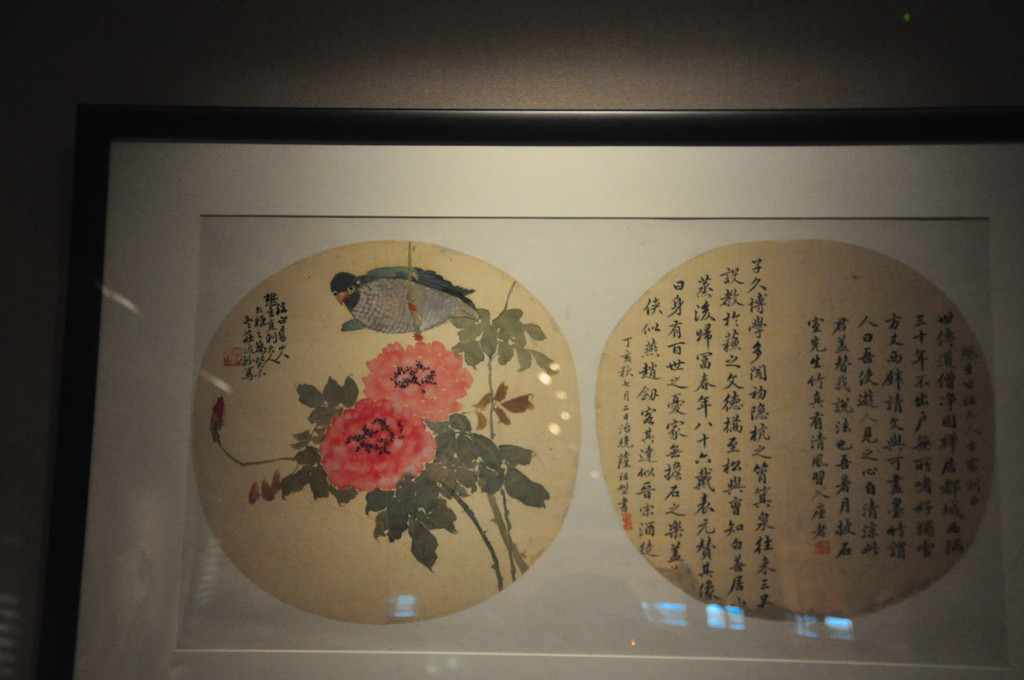 世傳道僧淨因禪居都城西隔
三十年不出戶無所嗜好獨雪
方丈西壁請文與可畫墨竹謂
人曰吾使遊人見之心自清涼此
君蓋替我說法也吾暑月披石
室先生竹真有清風習人座者
子久博學多聞初隱杭之筲箕泉往來三
設教於蘇之文德橋至松與曹知白善居小
蒸後歸富春年八十六戴表元贊其像
曰身有百世之憂家無擔石之樂蓋
俠似燕趙劍客其達似晉宋酒徒
丁亥秋七月二日治晚陸祖書